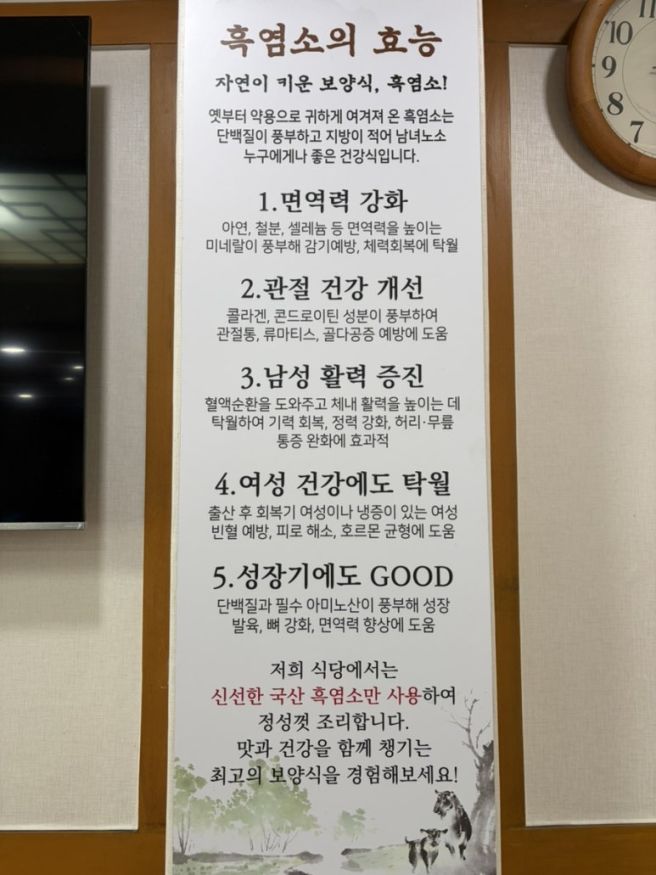 흑염소의 효능
자연이 키운 보양식, 흑염소!
옛부터 약용으로 귀하게 여겨져 온 흑염소는
단백질이 풍부하고 지방이 적어 남녀노소
누구에게나 좋은 건강식입니다.
1.면역력 강화
아연, 철분, 셀레늄 등 면역력을 높이는
미네랄이 풍부해 감기예방, 체력회복에 탁월
2.관절 건강 개선
콜라겐, 콘드로이틴 성분이 풍부하여
관절통, 류마티스, 골다공증 예방에 도움
3.남성 활력 증진
혈액순환을 도와주고 체내 활력을 높이는 데
탁월하여 기력 회복, 정력 강화, 허리·무릎
통증 완화에 효과적
4.여성 건강에도 탁월
출산 후 회복기 여성이나 냉증이 있는 여성
빈혈 예방, 피로 해소, 호르몬 균형에 도움
5.성장기에도 GOOD
단백질과 필수 아미노산이 풍부해 성장
발육, 뼈 강화, 면역력 향상에 도움
저희 식당에서는
신선한 국산 흑염소만 사용하여
정성껏 조리합니다.
맛과 건강을 함께 챙기는
최고의 보양식을 경험해보세요!
11
10
9
8
7